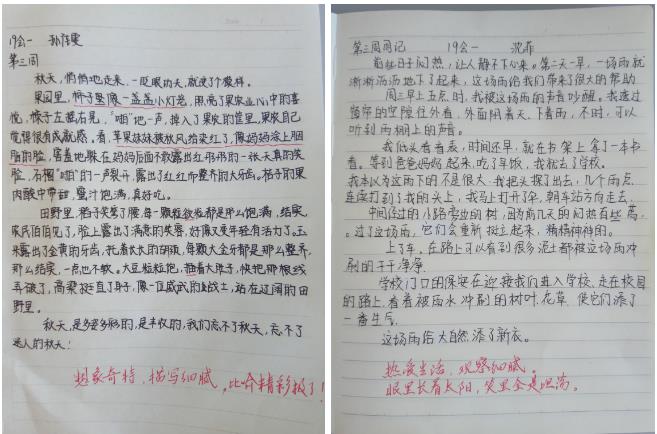 19会一 孙佳雯
第三周
秋天，悄悄地走来，一眨眼功夫，就变了模样。
果园里，柿子真像一盏盏小灯笼，照亮了果农心中的喜
悦，懔子左摇右晃，"咱"地一声，掉入了果农的筐里，果农自己
觉得很有成就感。看，苹果妹妹被秋风给染红了，像妈妈涂上胭
脂的脸，害羞地躲在妈妈后面不敢露出红彤彤的一张天真的笑
脸，石榴"咱"的一声裂开，露出了红红而整齐的大牙齿。桔子的果
肉酸中带甜，蜜汁饱满，真好吃。
田野里，稻子笑弯了腰，每一颗粒粒都是那么饱满，结实，
农民伯伯见了，脸上露出了满意的笑容，好像又变年轻有活力了。玉
米露出了金黄的牙齿，托着长长的胡须，每颗大金牙都是那么整齐，
那么结实，一点也不软。大豆粒粒饱，挺着大肚子，快把那根线
弄破了，高粱挺直了身子，像一位威武的战士，站在辽阔的田
野里。
秋天，是多姿多彩的，是丰收的，我们忘不了秋天，忘不了
迷人的秋天！
想象奇特，描写细腻，比喻精彩极了！
第三周周记 19会一 沈菲
前些日子闷热，让人静不下心来。第二天一早，一场雨就
淅淅沥沥地下了起来，这场雨给我们带来了很大的帮助
周三早上五点时，我被这场雨的声音吵醒。我透过
窗帘的空隙往外看，外面阴着天，下着雨，不时，可以
听到雨棚上的声音。
我低头看看表，时间还早，就在书架上拿了一本书
看。等到爸爸妈妈起来，吃了早饭，我就去了学校。
我本以为这雨下的不是很大，我把头探了出去，几个雨点
连续打到了我的头上，我马上打开伞，朝车站方向走去
中间经过的小路旁边的树，因为前几天的闷热有些蔫，
过了这场雨，它们会重新挺立起来，精精神神的。
上了车，在路上可以看到很多泥土都被这场雨冲
刷的干干净净
学校门口的保安在迎接我们进入学校，走在校园
的路上，看着被雨水冲刷的树叶、花草，使它们添了
一番生气
这场雨给大自然添了新衣。
热爱生活，观察细腻。
眼里长着太阳，笑里全是坦荡。